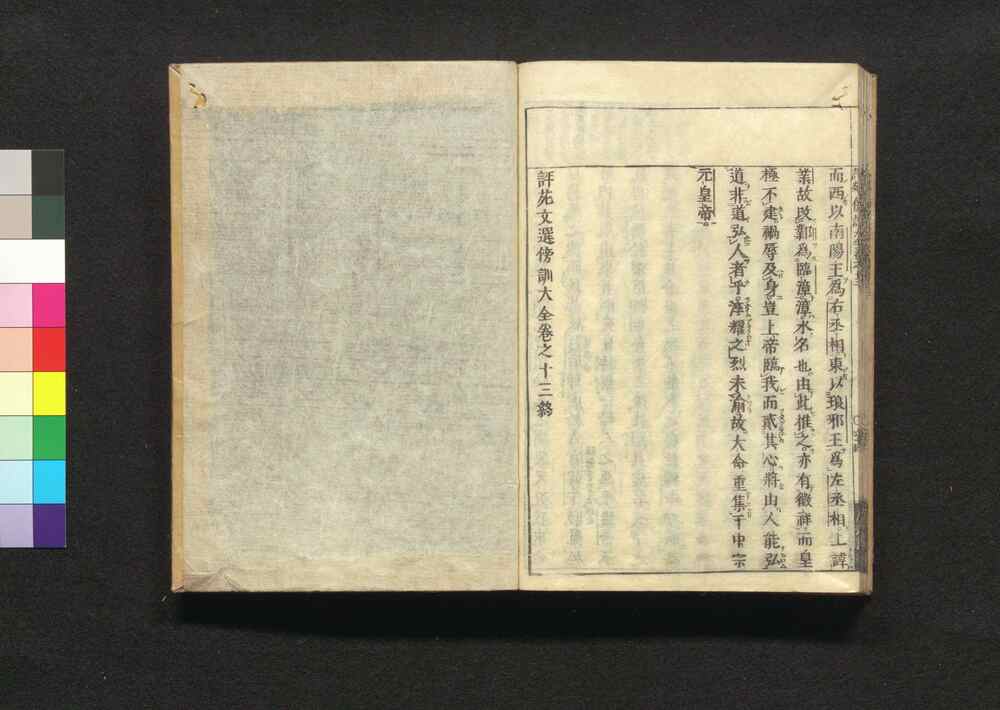 而西以南陽王爲右丞相東以琅邪王爲左丞相上諱
業故改鄴爲臨漳漳水名也由此推之亦有徵祥而皇
極不建禍辱及身豈上帝臨我而貳其心將由人能弘
道非道弘人者乎淳耀之烈未渝故大命重集于中宗
元皇帝
評苑文選傍訓大全卷之十三終